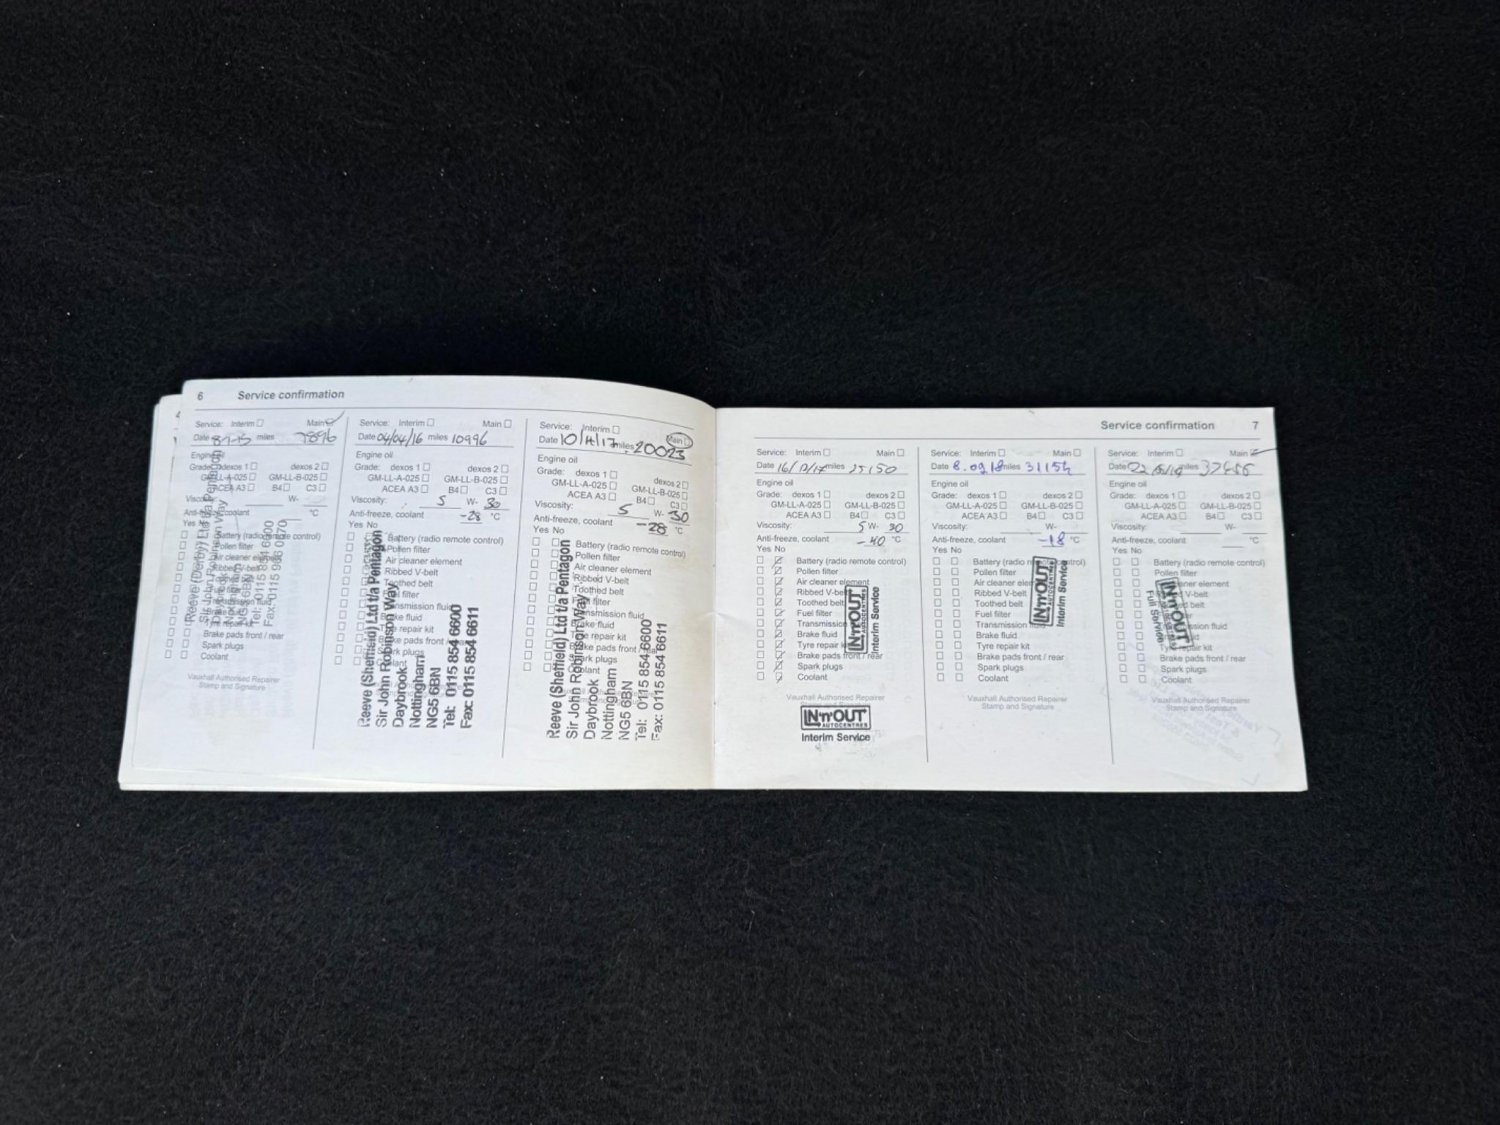 6 Service confirmation
Service: Interim Main
Date 8-7-15 miles 7896
Engine oil
Grade: dexos 1 dexos 2
GM-LL-A-025 GM-LL-B-025
ACEA A3 B4 C3
Viscosity: W-
Anti-freeze, coolant °C
Yes No
Battery (radio remote control)
Pollen filter
Air cleaner element
Ribbed V-belt
Brake pads front / rear
Spark plugs
Coolant
Vauxhall Authorised Repairer
Stamp and Signature
Reeve (Derby) Ltd t/a Pentagon
Sir John Robinson Way
Service: Interim Main
Date 04/04/16 miles 10996
Engine oil
Grade: dexos 1 dexos 2
GM-LL-A-025 GM-LL-B-025
ACEA A3 B4 C3
Viscosity: 5 W- 30
Anti-freeze, coolant -28 °C
Yes No
Battery (radio remote control)
Pollen filter
Air cleaner element
Ribbed V-belt
Toothed belt
Reeve (Sheffield) Ltd t/a Pentagon
Sir John Robinson Way
Daybrook
Nottingham
NG5 6BN
Tel: 0115 854 6600
Fax: 0115 854 6611
Service: Interim Main
Date 10/4/17 miles 20023
Engine oil
Grade: dexos 1 dexos 2
GM-LL-A-025 GM-LL-B-025
ACEA A3 B4 C3
Viscosity: 5 W- 30
Anti-freeze, coolant -28 °C
Yes No
Battery (radio remote control)
Pollen filter
Air cleaner element
Ribbed V-belt
Toothed belt
Reeve (Sheffield) Ltd t/a Pentagon
Sir John Robinson Way
Daybrook
Nottingham
NG5 6BN
Tel: 0115 854 6600
Fax: 0115 854 6611
Service confirmation 7
Service: Interim Main
Date 16/ /17 miles 25150
Engine oil
Grade: dexos 1 dexos 2
GM-LL-A-025 GM-LL-B-025
ACEA A3 B4 C3
Viscosity: 5 W- 30
Anti-freeze, coolant -40 °C
Yes No
Battery (radio remote control)
Pollen filter
Air cleaner element
Ribbed V-belt
Toothed belt
Fuel filter
Transmission
Brake fluid
Tyre repair kit
Brake pads front / rear
Spark plugs
Coolant
Vauxhall Authorised Repairer
IN'n'OUT
AUTOCENTRES
Interim Service
IN'n'OUT
AUTOCENTRES
Interim Service
Service: Interim Main
Date 8.09.18 miles 31154
Engine oil
Grade: dexos 1 dexos 2
GM-LL-A-025 GM-LL-B-025
ACEA A3 B4 C3
Viscosity: W-
Anti-freeze, coolant -18 °C
Yes No
Battery (radio remote control)
Pollen filter
Air cleaner element
Ribbed V-belt
Toothed belt
Fuel filter
Transmission
Brake fluid
Tyre repair kit
Brake pads front / rear
Spark plugs
Coolant
Vauxhall Authorised Repairer
Stamp and Signature
IN'n'OUT
AUTOCENTRES
Interim Service
Service: Interim Main
Date 22 miles
Engine oil
Grade: dexos 1 dexos 2
GM-LL-A-025 GM-LL-B-025
ACEA A3 B4 C3
Viscosity: W-
Anti-freeze, coolant °C
Yes No
Battery (radio remote control)
Pollen filter
cleaner element
V-belt
belt
Tyre repair kit
Brake pads front / rear
Spark plugs
Coolant
Vauxhall Authorised Repairer
Stamp and Signature
IN'n'OUT
Full Service